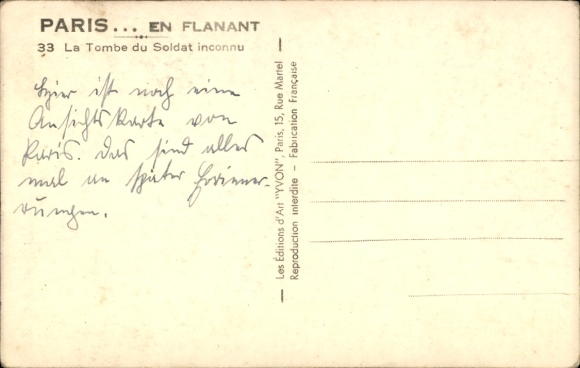 PARIS... EN FLANANT
33 La Tombe du Soldat inconnu
Hier ist noch eine
Ansichtskarte von
Paris. Das sind alles
mal an später Erinner-
rungen.
Les Éditions d'Art "YVON", Paris, 15, Rue Martel
Reproduction interdite – Fabrication Française